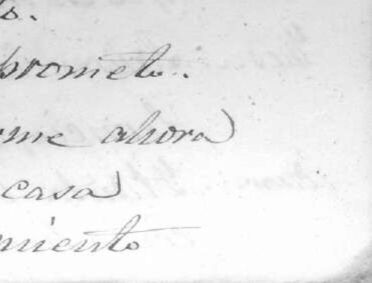 s.
prometo.
me ahora
casa
miento